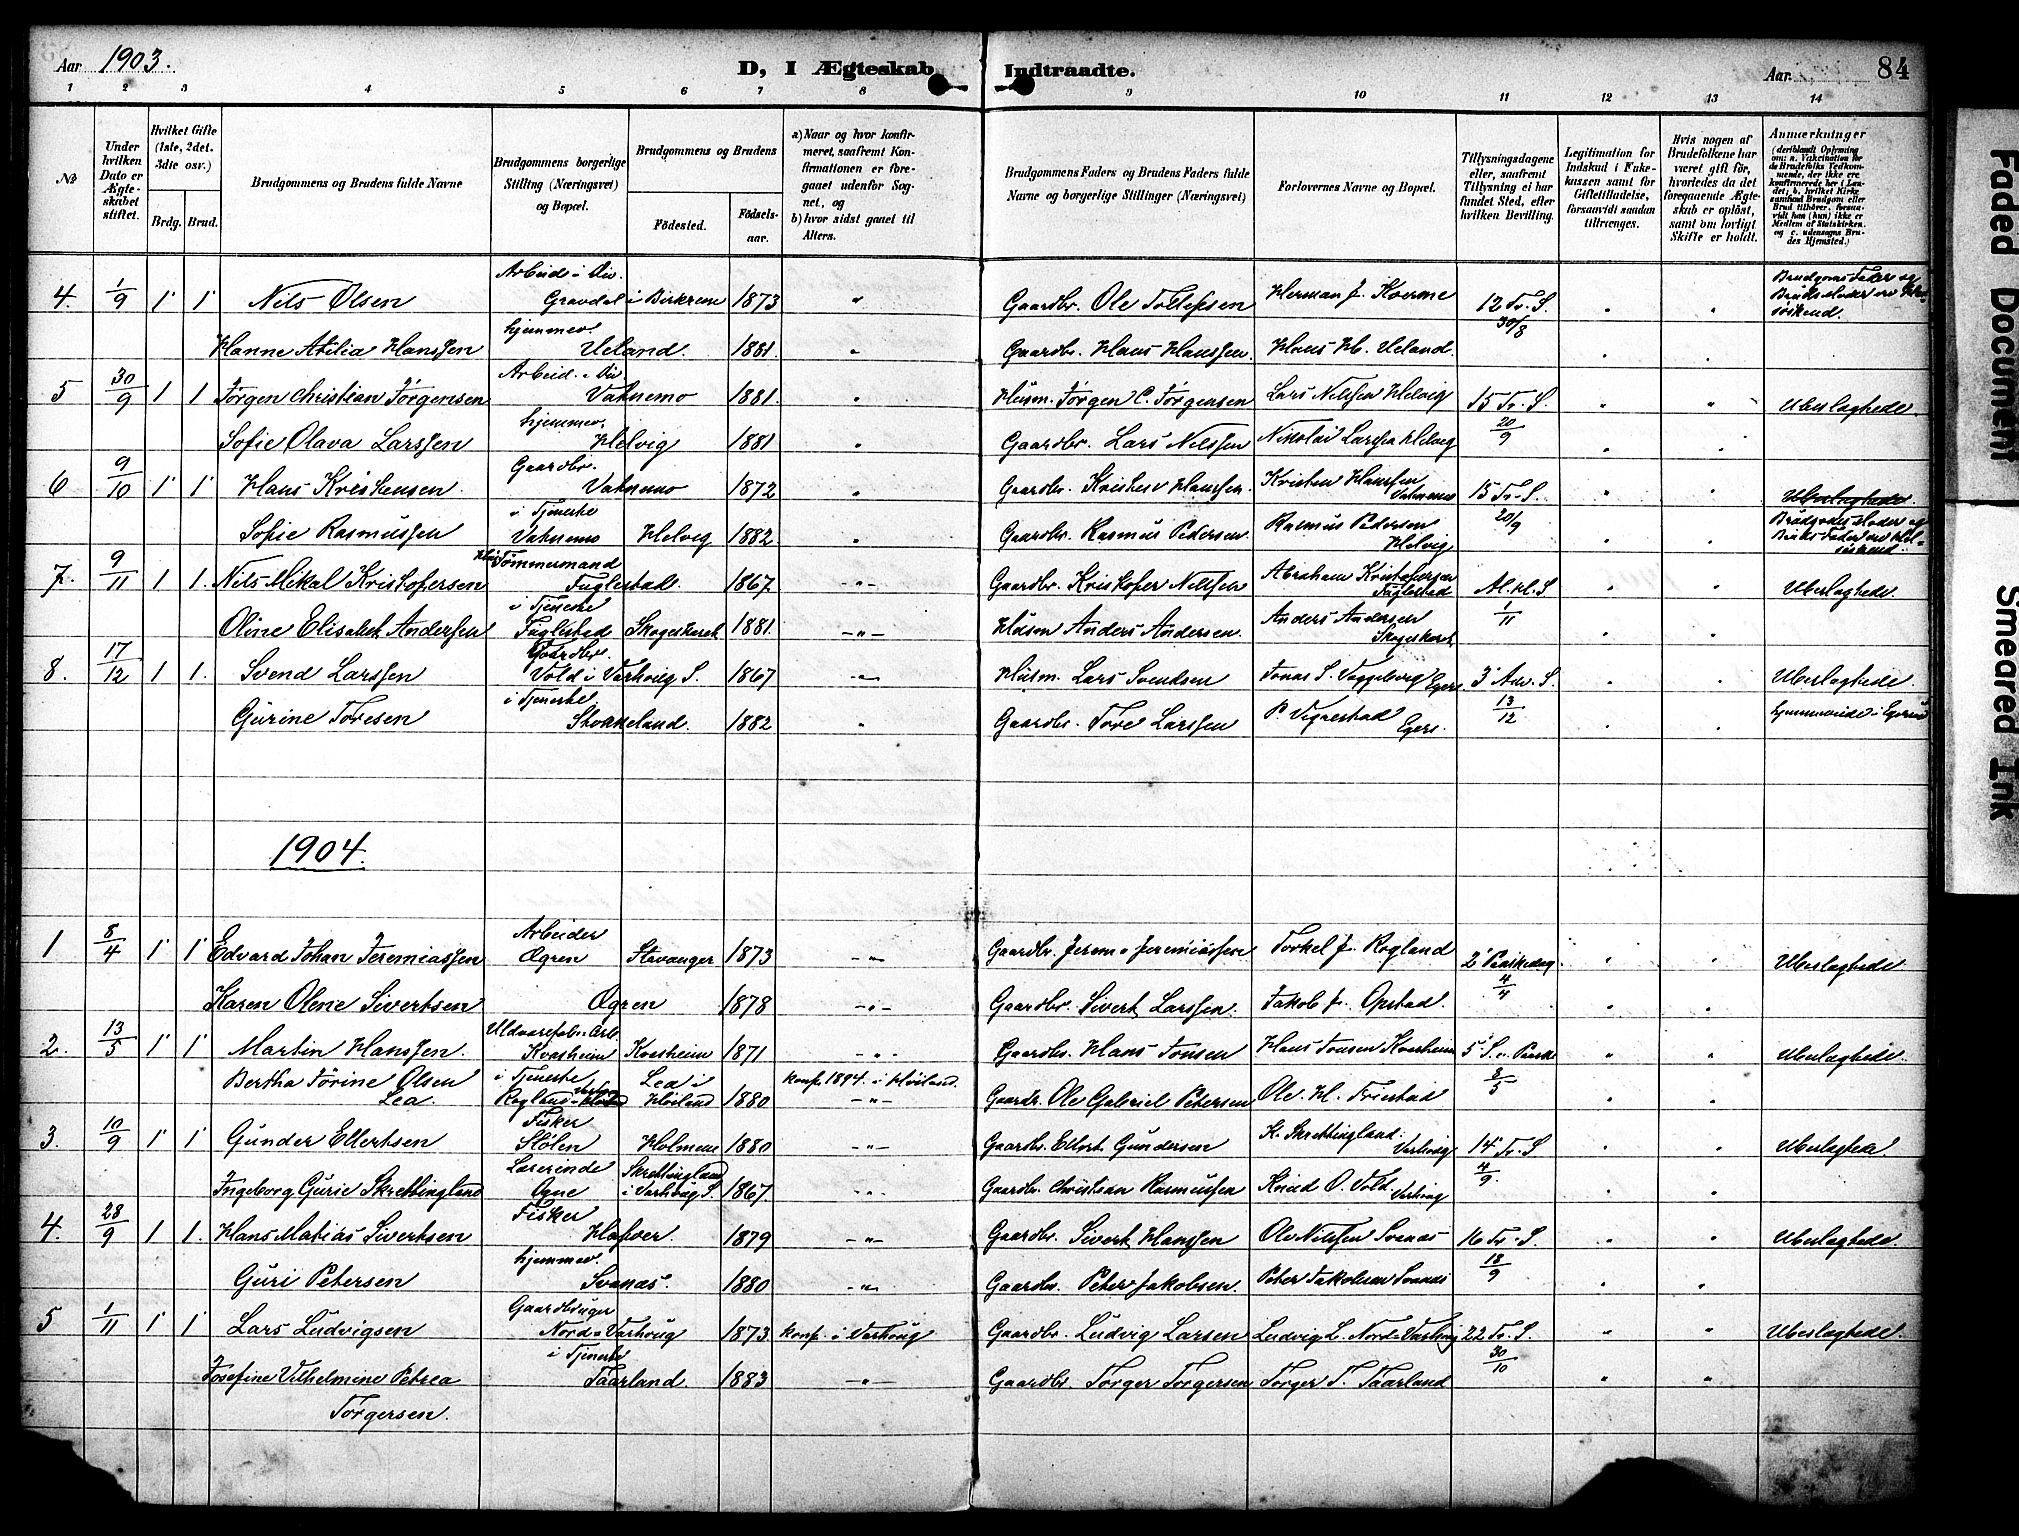 Aar 1903.
D, I Ægteskab Indtraadte.
Aar 84
1 2 3 4 5 6 7 8 9 10 11 12 13 14
№
Under hvilken Dato er Ægteskabet stiftet.
Hvilket Gifte (1ste, 2det, 3die osv.)
Brdg. Brud.
Brudgommens og Brudens fulde Navne
Brudgommens borgerlige Stilling (Næringsvei) og Bopæl.
Brudgommens og Brudens
Födested.
Födselsaar.
a) Naar og hvor konfirmeret, saafremt Konfirmationen er foregaaet udenfor Sognet, og
b) hvor sidst gaaet til Alters.
Brudgommens Faders og Brudens Faders fulde Navne og borgerlige Stillinger (Næringsvei)
Forlovernes Navne og Bopæl.
Tillysningsdagene eller, saafremt Tillysning ei har fundet Sted, efter hvilken Bevilling.
Legitimation for Indskud i Enkekassen samt for Giftetilladelse, forsaavidt saadan tiltrænges.
Hvis nogen af Brudefolkene har været gift för, hvorledes da det foregaaende Ægteskab er oplöst, samt om lovligt Skifte er holdt.
Anmærkninger
4. 1/9 1 1 Nils Olsen Arbeid i Div. Gravdal i Birkrem 1873 " Gaardbr. Ole Tollefsen Herman J. Kverme 12 Tr. S. 30/8 " " Brudgoms Fader og Bruds Moder ere søskend.
Hanne Atilia Hanssen hjemmev. Ueland. 1881. " Gaardbr. Hans Hanssen Hans H. Ueland. " "
5 30/9 1 1 Jørgen Christian Jørgensen Arbeid. i Div Vatnemo 1881. " Husm. Jørgen C. Jørgensen Lars Nilssen Helvig 15 Tr. S. 20/9 " " Ubeslægtede.
Sofie Olava Larssen hjemmev. Helvig 1881 " Gaardbr. Lars Nilssen Nikolai Larssen Helvig " "
6 9/10 1 1 Hans Kristensen Gaardbr. Vatnemo 1872 " Gaardbr. Kristen Hanssen. Kristen Hanssen Vatnemo 15 Tr. S. 20/9 " " Ubeslægtede
Sofie Rasmussen i Tjeneste Vatnemo Helvig 1882 " Gaardbr. Rasmus Pedersen Rasmus Pedersen Helvig " " Brudgoms Moder og Bruds Fader ere søskend.
7. 9/11 1 1. Nils Mikal Kristofersen Tømmermand Fuglestad. 1867. -"- Gaardbr. Kristofer Nilssen Abraham Kristofersen Fuglestad Al. Hl. S 1/11 " " Ubeslægtede.
Oline Elisabet Anderssen i Tjeneste Fuglestad Skogeskaret 1881. -"- Husm Anders Andersen. Anders Andersen Skogeskaret " "
8. 17/12 1 1. Svend Larssen Gaardbr. Vold i Varhoug S. 1867 " Husm. Lars Svendsen Jonas S. Eger. 3' Adv. S. 13/12 " " Ubeslægtede.
Gurine Toresen i Tjeneste Stokkeland. 1882 " Gaardbr. Tore Larssen P. Vignestad Egers. " " hjemmevide i Egersund
1904.
1 8/4 1 1 Edvard Johan Jeremiassen Arbeider Ogren Stavanger 1873 -"- Gaardbr. Jerem. Jeremiassen Torkel J. Rogland 2' Paaskedag 4/4 " " Ubeslægtede
Karen Oline Sivertsen Ogren 1878 -"- Gaardbr. Sivert Larssen. Jakob J. Opstad. " "
2. 13/5 1 1 Martin Hanssen. Uldvarefab. Arb. Kvasheim Kvasheim 1871 -"- Gaardbr. Hans Jonsen Hans Jonsen Kvasheim 5' S. e. Paaske 8/5 " " Ubeslægtede.
Bertha Tørine Olsen Lea. i Tjeneste Rogland Lea i Høiland 1880 konf. 1894. i Høiland. -"- Gaardr. Ole Gabriel Petersen Ole. H. Friestad " "
3. 10/9 1 1 Gunder Ellertsen Fisker Stølen Holmene 1880 -"- Gaardbr. Ellert Gundersen K. Skrettingland. Varhoug 14' Tr. S 4/9 " " Ubeslægtede
Ingeborg Gurie Skrettingland Lærerinde Ogne Skrettingland i Varhoug S. 1867 " Gaardbr. Christian Rasmussen Knud O. Vold Varhoug " "
4. 28/9 1 1. Hans Matias Sivertsen Fisker Hafver. 1879 -"- Gaardbr. Sivert Hanssen Ole Nilssen Svanæs 16 Tr. S. 18/9 " " Ubeslægtede.
Guri Petersen hjemmev. Svanæs. 1880 " Gaardbr. Peter Jakobsen. Peter Jakobsen Svanæs " "
5 1/11 1 1 Lars Ludvigsen Gaardbruger Nord-Varhoug 1873. konf. i Varhoug Gaardbr. Ludvig Larsen Ludvig L. Nord-Varhoug 22 Tr. S. 30/10 " " Ubeslægtede.
Josefine Vilhelmine Petrea Torgersen. i Tjeneste Taarland 1883 -"- Gaardbr. Torger Torgersen Torger T. Taarland " "
Faded Document
Smeared Ink